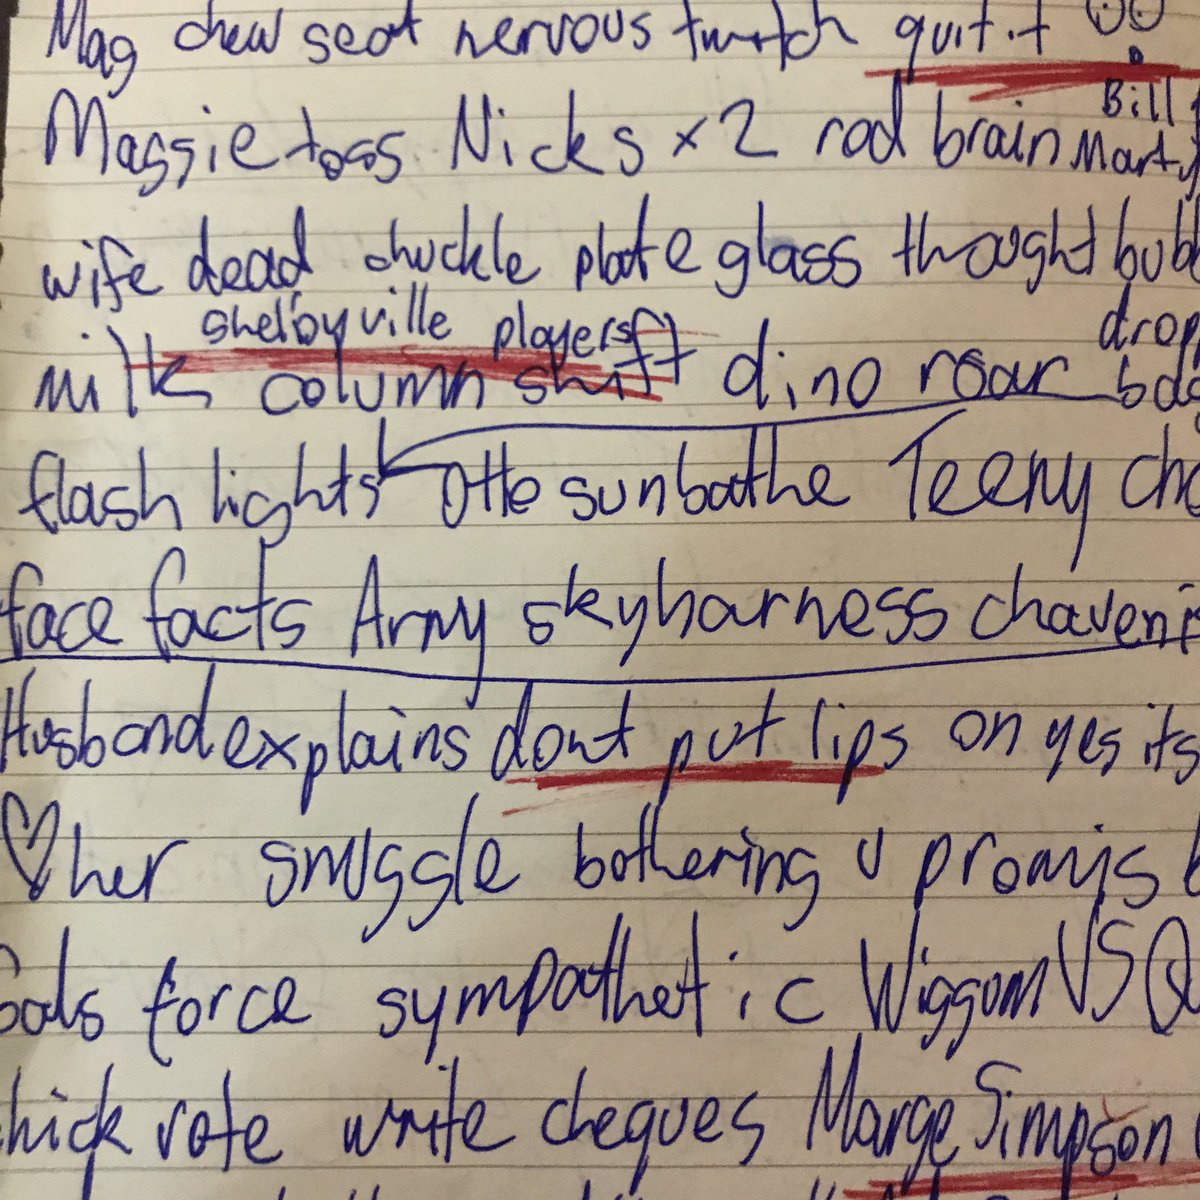 Mag chew seat nervous twitch quit it
Bill
Massie toss Nicks x2 rod brain Marty
wife dead chuckle plate glass thought bub
shelbyville players drop
milk column shift dino roar
flash lights Otto sunbathe Teeny ch
face facts Army skyharness
Husband explains dont put lips on yes its
♡ her snuggle bothering u promis
force sympathetic Wiggum VS Q
hick vote write cheques Marge Simpson